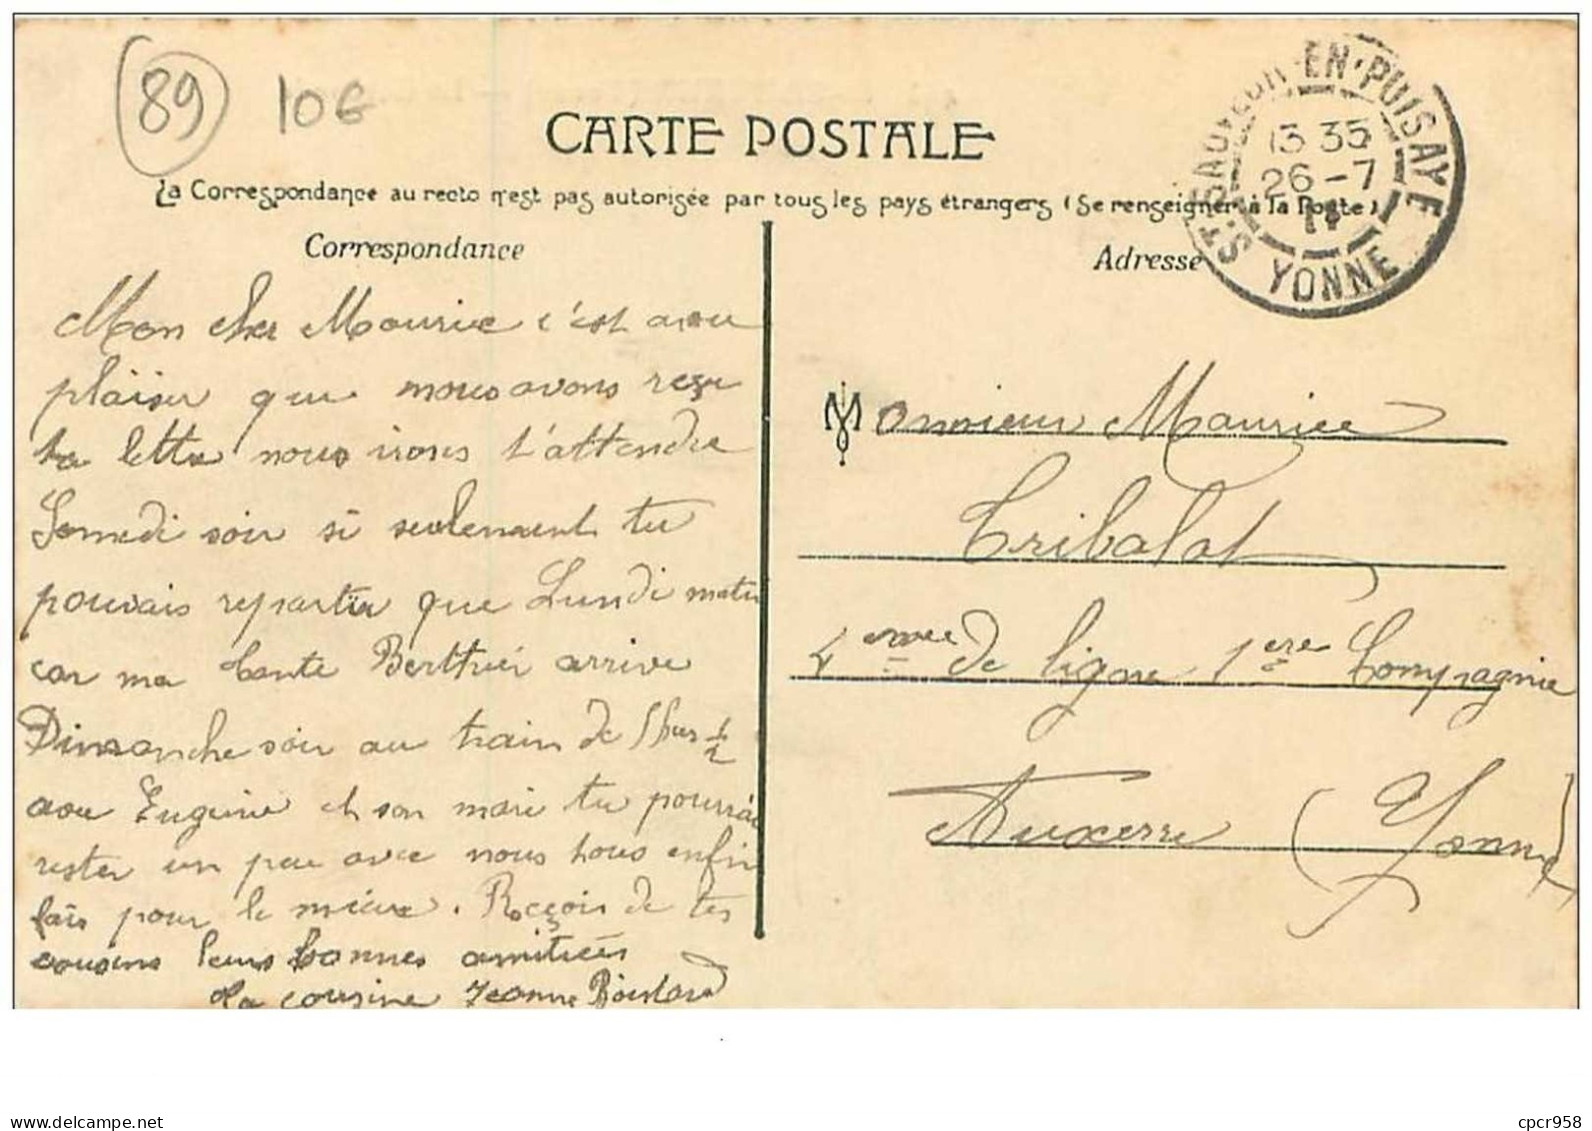 89
10€
CARTE POSTALE
La Correspondance au recto n'est pas autorisée par tous les pays étrangers (Se renseigner à la Poste)
Correspondance
Adresse
ST-SAUVEUR-EN-PUISAYE
13 35
26-7
YONNE
Mon cher Maurice c'est avec
plaisir que nous avons reçu
ta lettre nous irons t'attendre
Samedi soir si seulement tu
pouvais repartir que Lundi matin
car ma tante Berthier arrive
Dimanche soir au train de 5 heures 1/2
avec Eugenie et son mari tu pourrais
rester un peu avec nous tous enfin
fais pour le mieux. Reçois de tes
cousins leurs bonnes amitiés
Ta cousine Jeanne
Monsieur Maurice
Tribalat
4eme de ligne 1ere Compagnie
Auxerre (Yonne)
www.delcampe.net
cpcr958